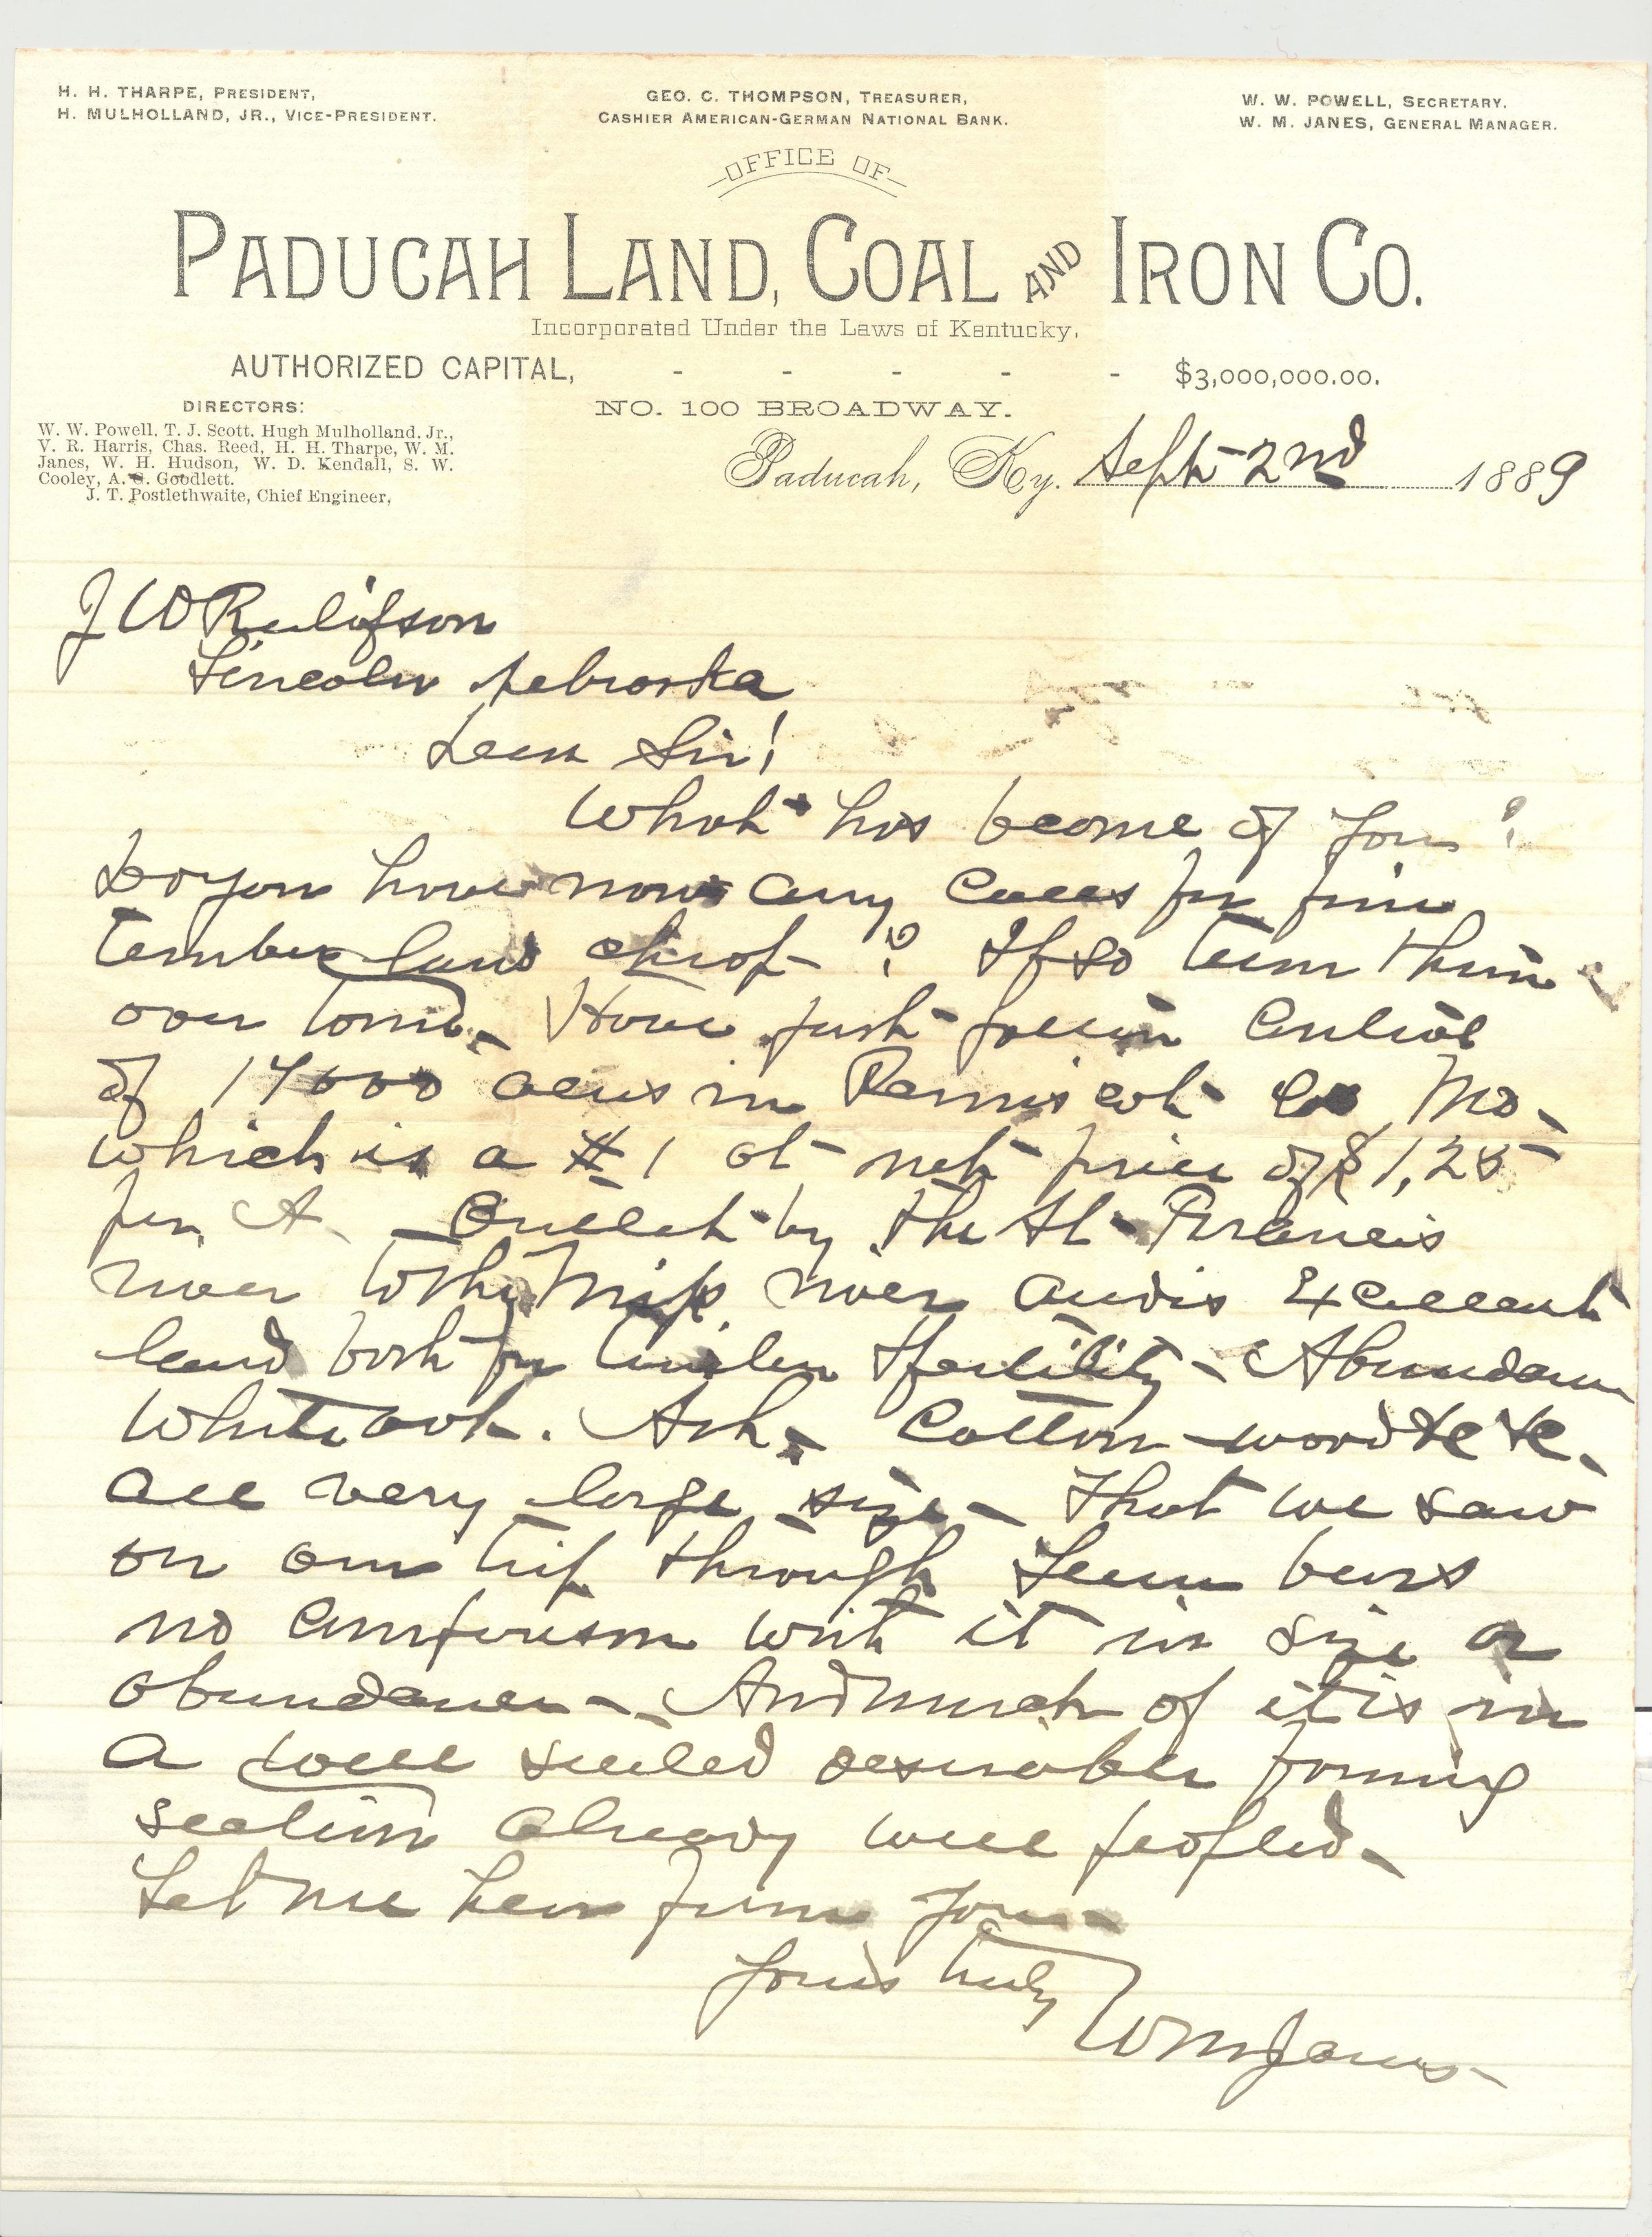 H. H. THARPE, PRESIDENT,
H. MULHOLLAND, JR., VICE-PRESIDENT.
GEO. C. THOMPSON, TREASURER,
CASHIER AMERICAN-GERMAN NATIONAL BANK.
W. W. POWELL, SECRETARY.
W. M. JANES, GENERAL MANAGER.
OFFICE OF
PADUCAH LAND, COAL AND IRON CO.
Incorporated Under the Laws of Kentucky.
AUTHORIZED CAPITAL, - - - - - $3,000,000.00.
DIRECTORS:
W. W. Powell, T. J. Scott, Hugh Mulholland, Jr.,
V. R. Harris, Chas. Reed, H. H. Tharpe, W. M.
Janes, W. H. Hudson, W. D. Kendall, S. W.
Cooley, A. S. Goodlett.
J. T. Postlethwaite, Chief Engineer,
NO. 100 BROADWAY.
Paducah, Ky. Sept 2nd 1889
J W Rulifson
Lincoln Nebraska
Dear Sir!
What has become of you?
Do you have now any calls for fine
timber land cheap? If so turn them
over to me. Have just gotten control
of 17000 acres in Pemiscot Co Mo.
which is a #1 at net price of $1,25
per A. by the St Francis
river to the Miss. river and is Excellent
land both for timber & fertility - Abundance
White oak. Ash, Cotton-wood &c &c.
all very large size - That we saw
on our trip through Tenn bears
no comparison with it in size or
abundance - And much of it is in
a well settled desirable farming
section already well peopled -
Let me hear from you -
Yours truly
W M Janes -